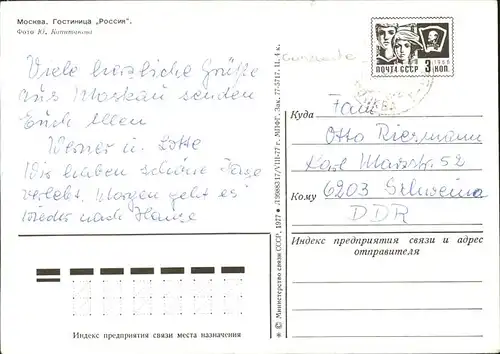 Москва. Гостиница „Россия".
Фото Ю. Копытикова
Viele herzliche Grüße
aus Moskau senden
Euch Allen
Werner u. Lotte
Wir haben schöne Tage
verlebt. Morgen geht es
wieder nach Hause
ПОЧТА СССР 3 КОП.
1966
Куда
Fam.
Otto Riezmann
Karl Marxstr. 52
Кому
6203
DDR
Индекс предприятия связи и адрес
отправителя
Индекс предприятия связи места назначения
© Министерство связи СССР, 1977